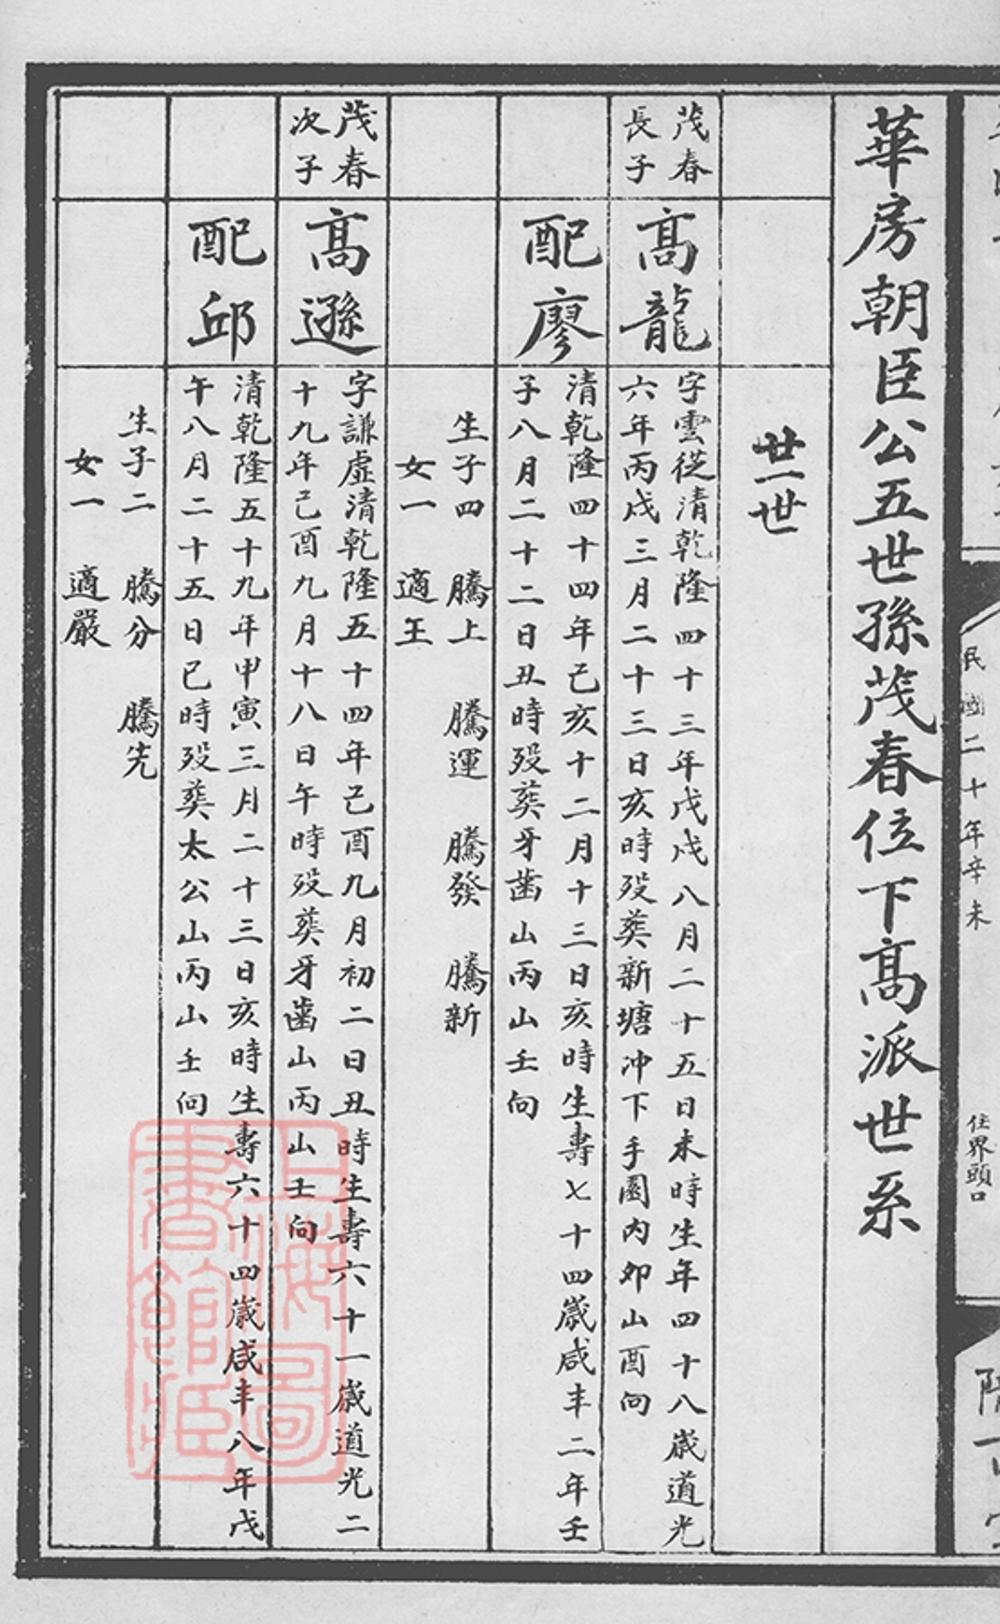 民國二十年辛未
住界頭口
華房朝臣公五世孫茂春位下高派世系
廿一世
茂春
長子
高龍
字雲從清乾隆四十三年戊戌八月二十五日未時生年四十八歲道光
六年丙戌三月二十三日亥時歿葬新塘冲下手園內卯山酉向
配廖
清乾隆四十四年己亥十二月十三日亥時生壽七十四歲咸丰二年壬
子八月二十二日丑時歿葬牙齒山丙山壬向
生子四 騰上 騰運 騰發 騰新
女一 適王
茂春
次子
高遜
字謙虛清乾隆五十四年己酉九月初二日丑時生壽六十一歲道光二
十九年己酉九月十八日午時歿葬牙齒山丙山壬向
配邱
清乾隆五十九年甲寅三月二十三日亥時生壽六十四歲咸丰八年戊
午八月二十五日巳時歿葬太公山丙山壬向
生子二 騰分 騰先
女一 適嚴
上海圖
書館藏